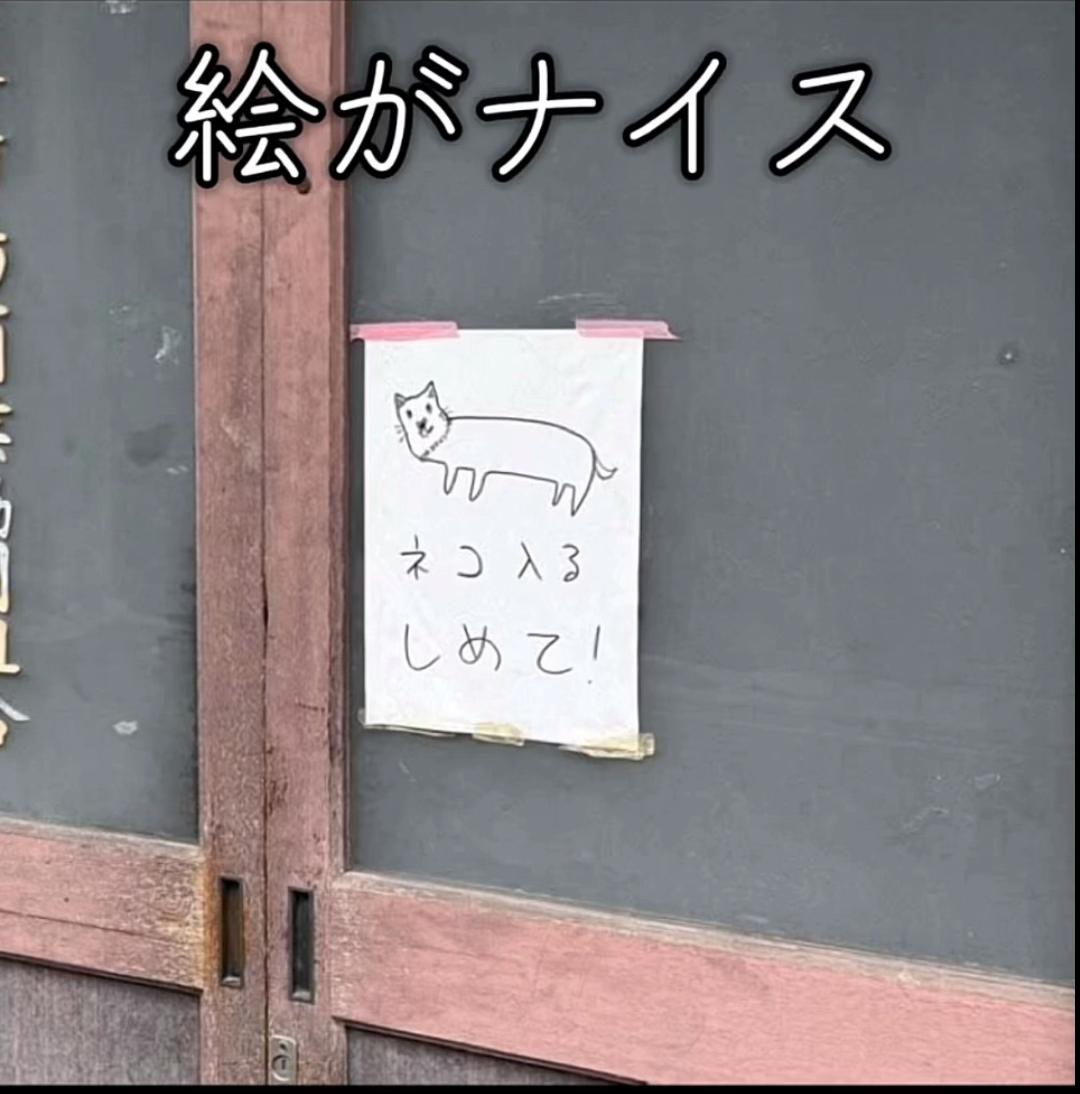 絵がナイス
ネコ入る
しめて!